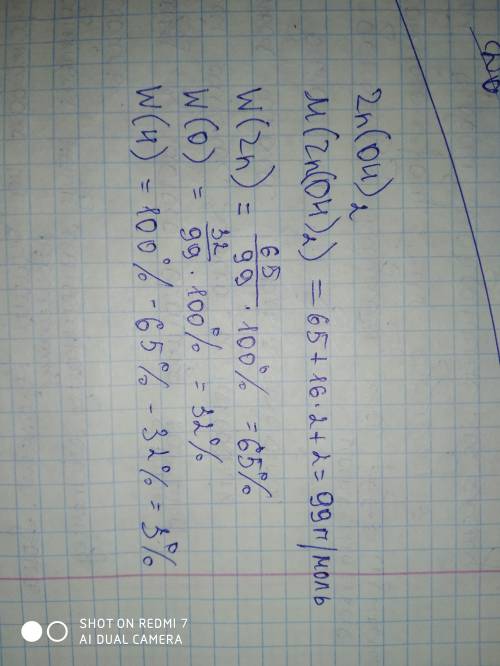 Zn(OH)₂
M(Zn(OH)₂) = 65 + 16·2 + 2 = 99 г/моль
W(Zn) = 65/99 · 100% = 65%
W(O) = 32/99 · 100% = 32%
W(H) = 100% - 65% - 32% = 3%
SHOT ON REDMI 7
AI DUAL CAMERA